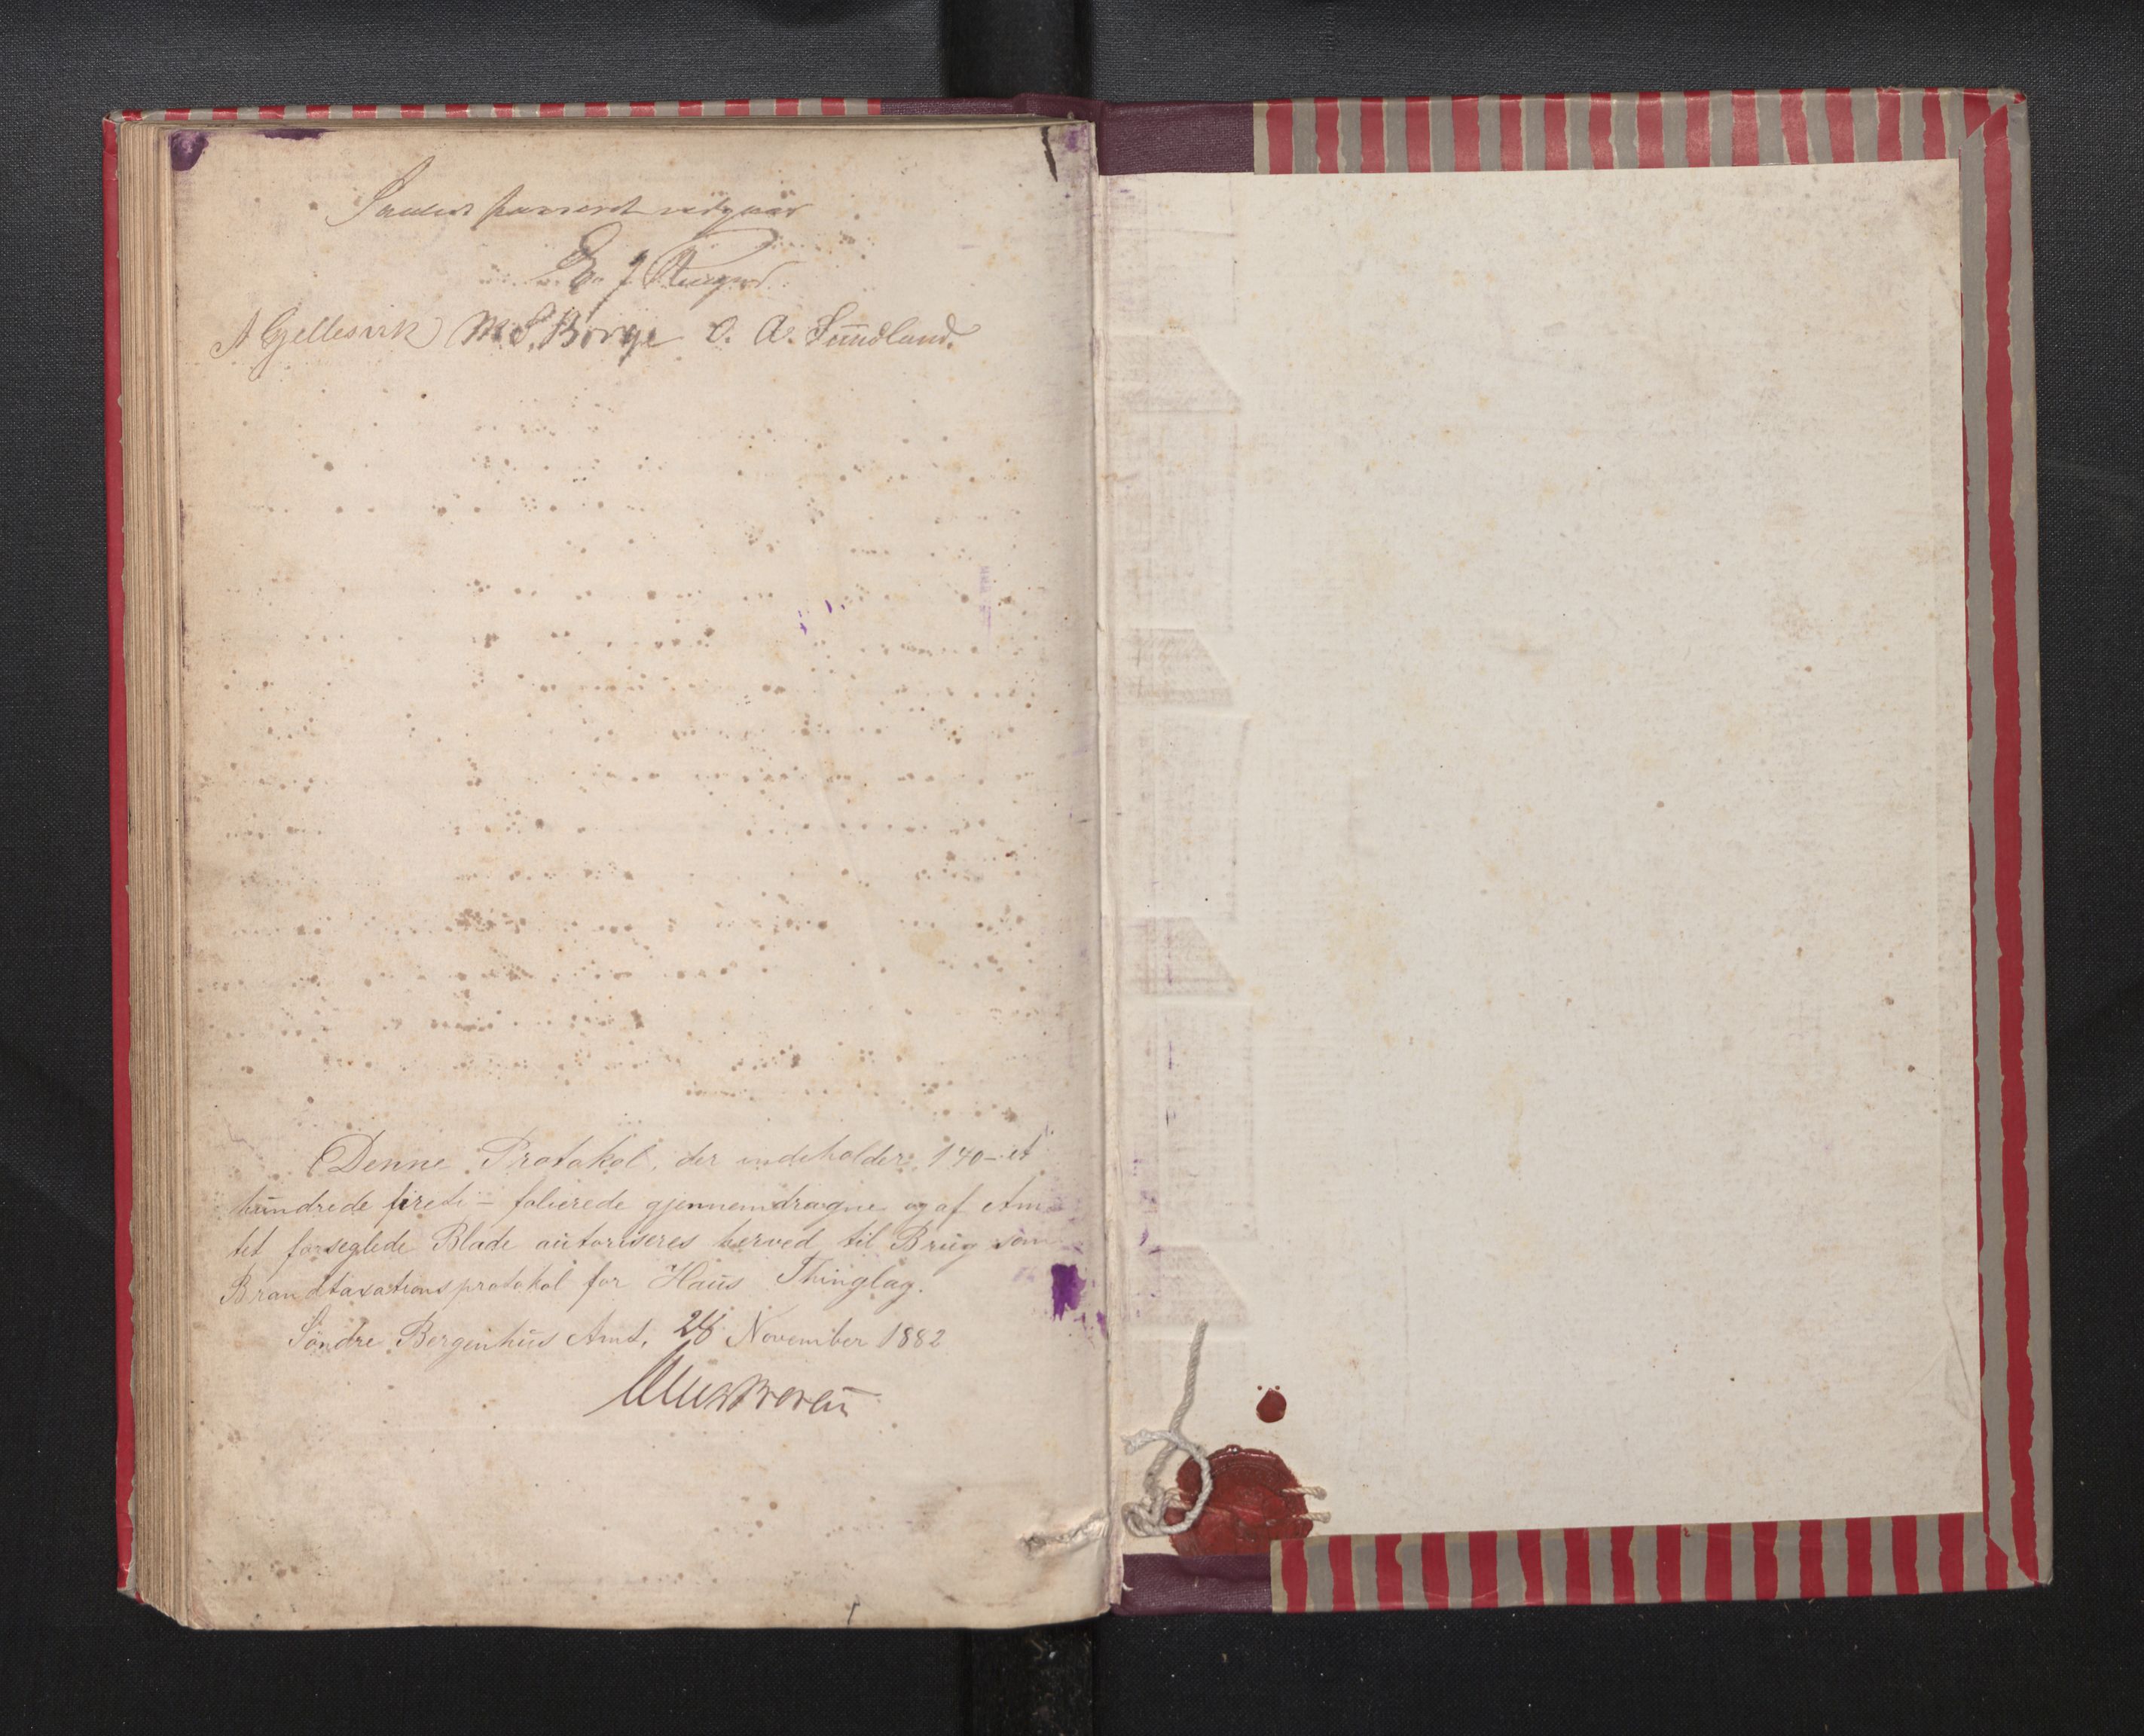 Saaledes passeret vedgaaes
A Gjellesvik M. S. Borge O. A. Sundland.
Denne Protokol, der indeholder 140 - et
hundrede fireti - folierede gjennemdragne og af Am-
tet forseglede Blade autoriseres herved til Brug som
Brandtaxationsprotokol for Haus Thinglag.
Søndre Bergenhus Amt, 28 November 1882